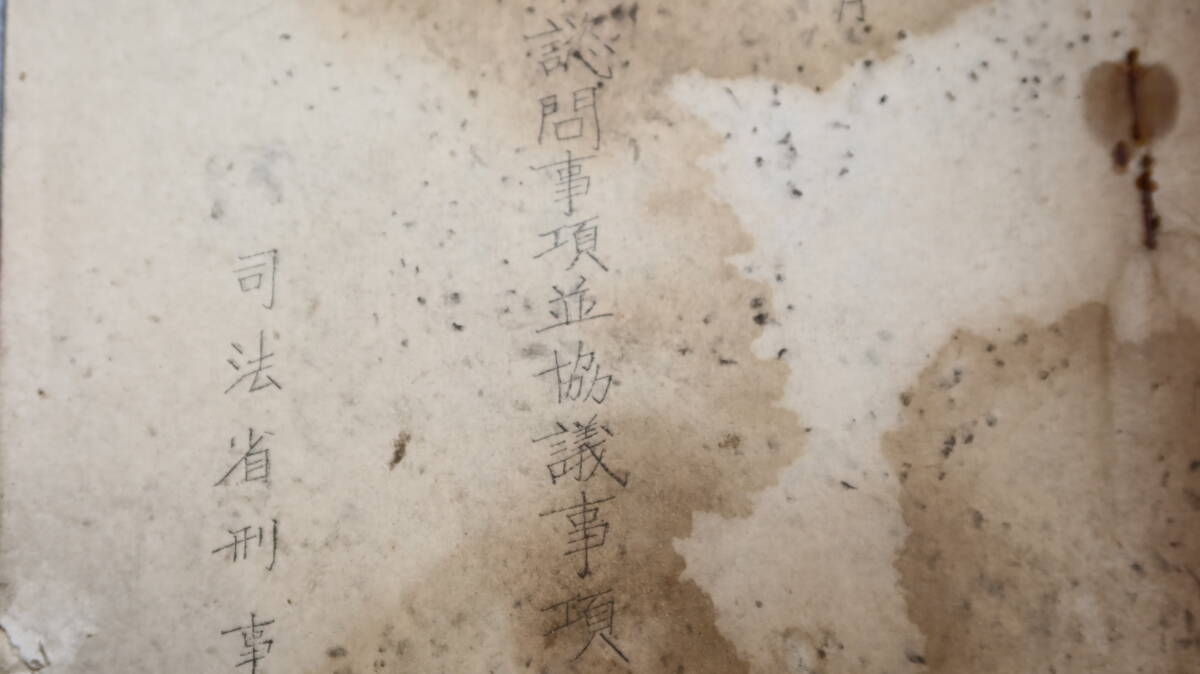 月
諮問事項並協議事項
司法省刑事